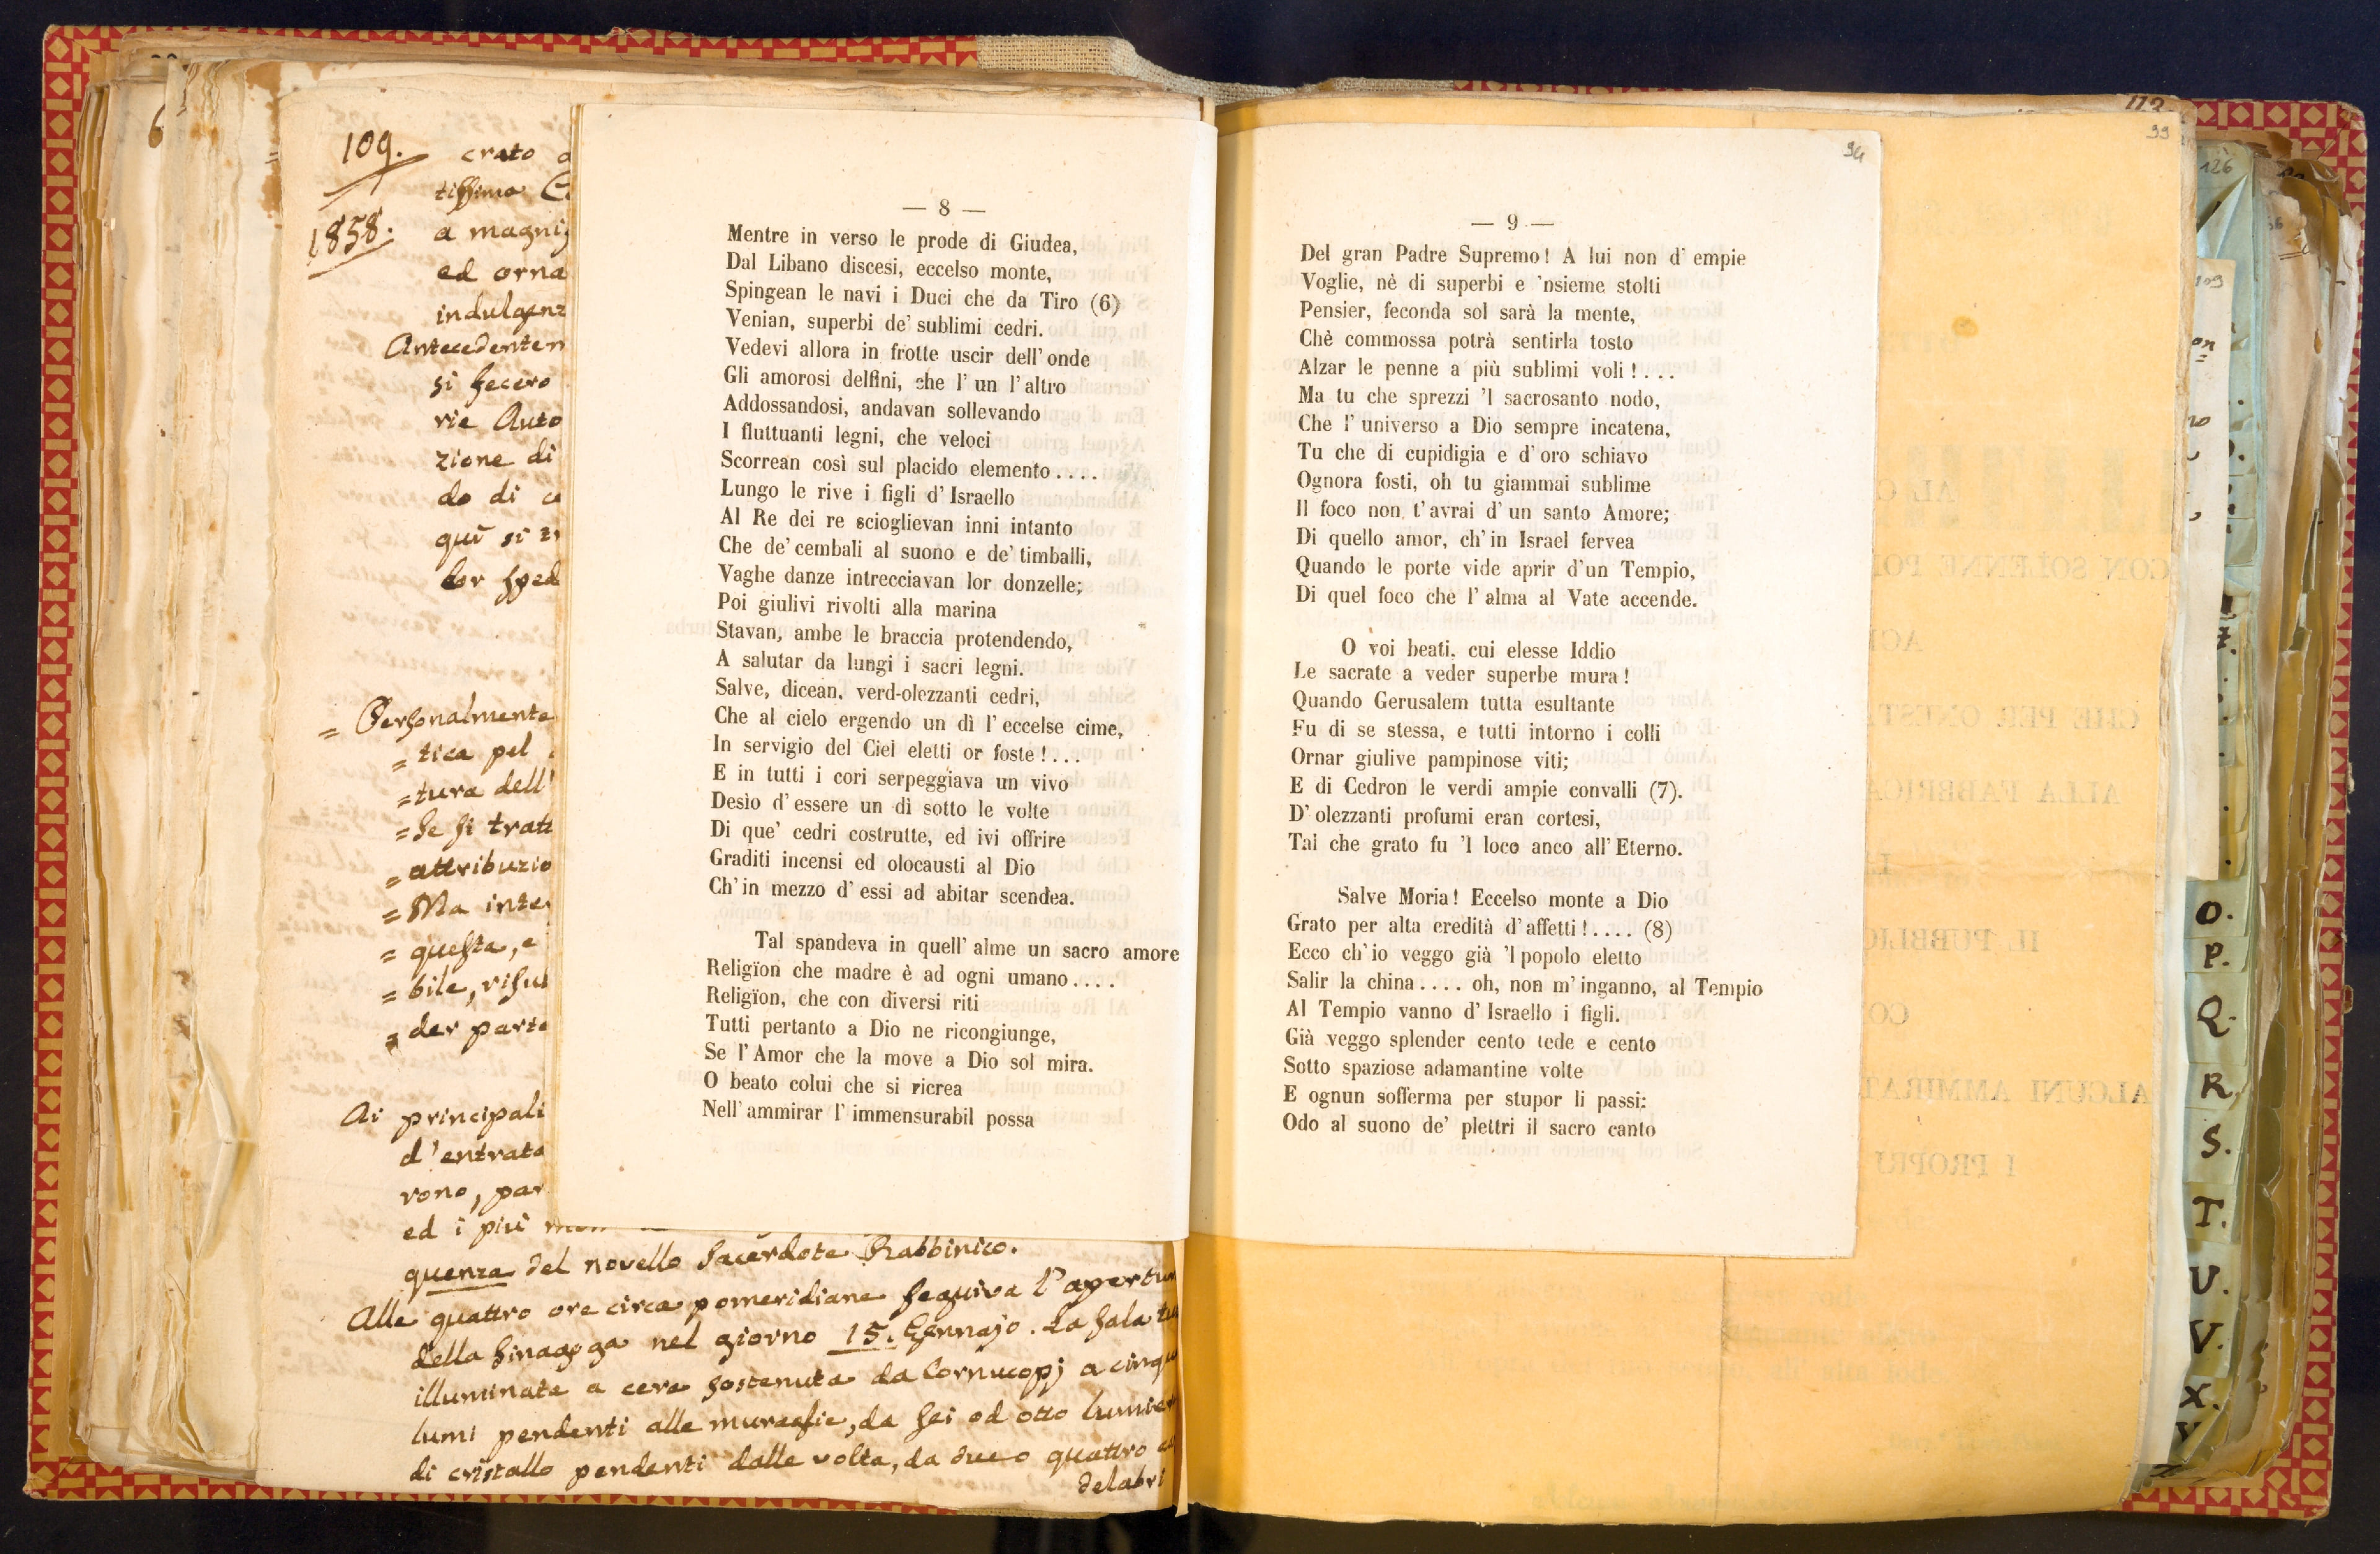 109.
1858.
crato
tissimo
a magni
ed orna
indulgenz
Antecedentem
si fecero
rie Auto
zione di
do di
qui si
lor sped
= Personalmente
= tica pel
= tura dell'
= se si tratt
= attribuzio
= Ma inte
= questa, e
= bile, risul
= der parte
Ai principali
d'entrata
vono, par
ed i più
quenza del novello Sacerdote Rabbinico.
Alle quattro ore circa pomeridiane seguiva l'apertur
della Sinagoga nel giorno 15. Gennajo. La Sala
illuminata a cera sostenuta da Cornucopj a cinq
lumi pendenti alle muraglie, da sei od otto lumier
di cristallo pendenti dalle volta, da due o quattro
delabri
— 8 —
Mentre in verso le prode di Giudea,
Dal Libano discesi, eccelso monte,
Spingean le navi i Duci che da Tiro (6)
Venian, superbi de' sublimi cedri.
Vedevi allora in frotte uscir dell' onde
Gli amorosi delfini, che l' un l' altro
Addossandosi, andavan sollevando
I fluttuanti legni, che veloci
Scorrean così sul placido elemento . . . .
Lungo le rive i figli d' Israello
Al Re dei re scioglievan inni intanto
Che de' cembali al suono e de' timballi,
Vaghe danze intrecciavan lor donzelle;
Poi giulivi rivolti alla marina
Stavan, ambe le braccia protendendo,
A salutar da lungi i sacri legni.
Salve, dicean, verd-olezzanti cedri,
Che al cielo ergendo un dì l' eccelse cime,
In servigio del Ciel eletti or foste ! . . .
E in tutti i cori serpeggiava un vivo
Desìo d' essere un dì sotto le volte
Di que' cedri costrutte, ed ivi offrire
Graditi incensi ed olocausti al Dio
Ch' in mezzo d' essi ad abitar scendea.
Tal spandeva in quell' alme un sacro amore
Religïon che madre è ad ogni umano . . . .
Religïon, che con diversi riti
Tutti pertanto a Dio ne ricongiunge,
Se l' Amor che la move a Dio sol mira.
O beato colui che si ricrea
Nell' ammirar l' immensurabil possa
94
— 9 —
Del gran Padre Supremo! A lui non d' empie
Voglie, nè di superbi e 'nsieme stolti
Pensier, feconda sol sarà la mente,
Chè commossa potrà sentirla tosto
Alzar le penne a più sublimi voli ! . . .
Ma tu che sprezzi 'l sacrosanto nodo,
Che l' universo a Dio sempre incatena,
Tu che di cupidigia e d' oro schiavo
Ognora fosti, oh tu giammai sublime
Il foco non t' avrai d' un santo Amore;
Di quello amor, ch' in Israel fervea
Quando le porte vide aprir d'un Tempio,
Di quel foco che l' alma al Vate accende.
O voi beati, cui elesse Iddio
Le sacrate a veder superbe mura!
Quando Gerusalem tutta esultante
Fu di se stessa, e tutti intorno i colli
Ornar giulive pampinose viti;
E di Cedron le verdi ampie convalli (7).
D' olezzanti profumi eran cortesi,
Tal che grato fu 'l loco anco all' Eterno.
Salve Moria! Eccelso monte a Dio
Grato per alta eredità d' affetti ! . . . . (8)
Ecco ch' io veggo già 'l popolo eletto
Salir la china . . . . oh, non m' inganno, al Tempio
Al Tempio vanno d' Israello i figli.
Già veggo splender cento tede e cento
Sotto spaziose adamantine volte
E ognun sofferma per stupor li passi:
Odo al suono de' plettri il sacro canto
113
99
126
109
O.
P.
Q.
R.
S.
T.
U.
V.
X.